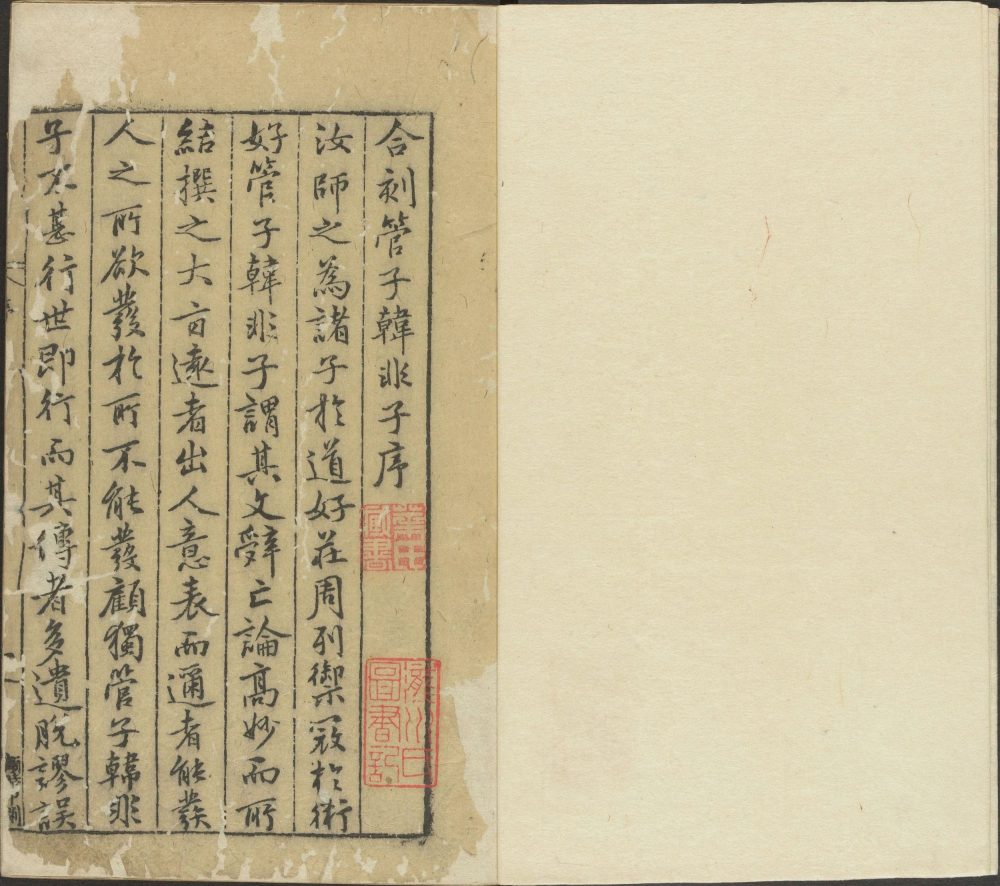 合刻管子韓非子序
汝師之為諸子於道好莊周列禦冦於術
好管子韓非子謂其文辤亡論髙妙而所
結撰之大㫖遠者出人意表而邇者能發
人之所欲發於所不能發顧獨管子韓非
子不甚行世即行而其傳者多遺脫謬誤
圖書記